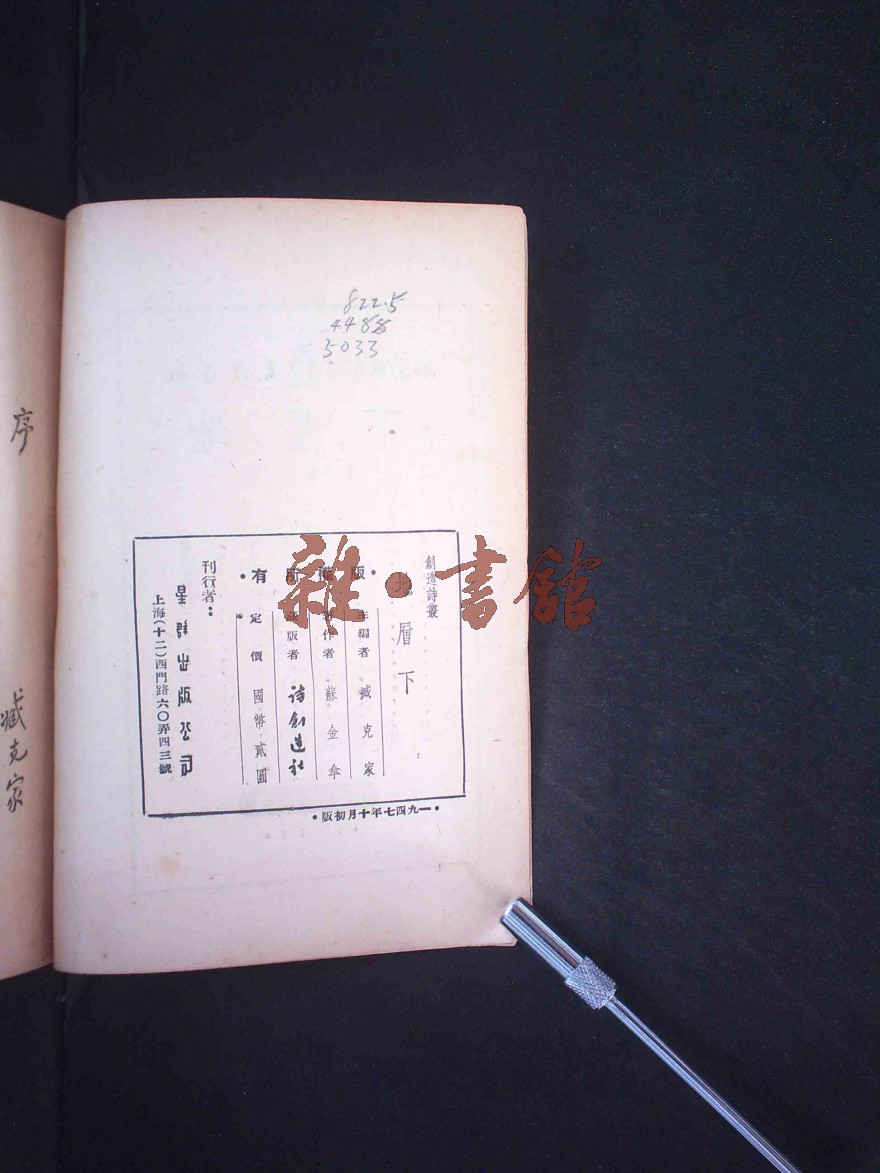 序
臧克家
822.5
4488
5033
創造詩叢
地層下
•版權所有•
主編者 臧克家
著作者 蘇金傘
出版者 詩創造社
定價 國幣貳圓
刊行者：
星群出版公司
上海(十二)西門路六〇弄四三號
•一九四七年十月初版•
雜·書館